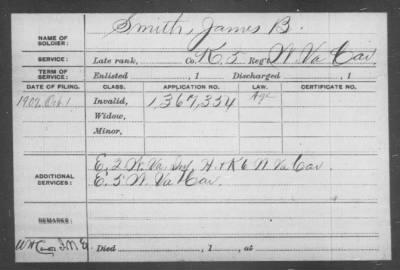 NAME OF SOLDIER: Smith, James B.
SERVICE: Late rank, Co. K, 5 Reg't W. Va Cav
TERM OF SERVICE: Enlisted , 1 Discharged , 1
DATE OF FILING. CLASS. APPLICATION NO. LAW. CERTIFICATE NO.
1907, Oct. 1 Invalid, 1,367,334 Age
Widow,
Minor,
ADDITIONAL SERVICES: E. 2 W. Va. Inf. H & K 6 W. Va Cav.
E. 5 W. Va Cav.
REMARKS:
Died , 1 , at